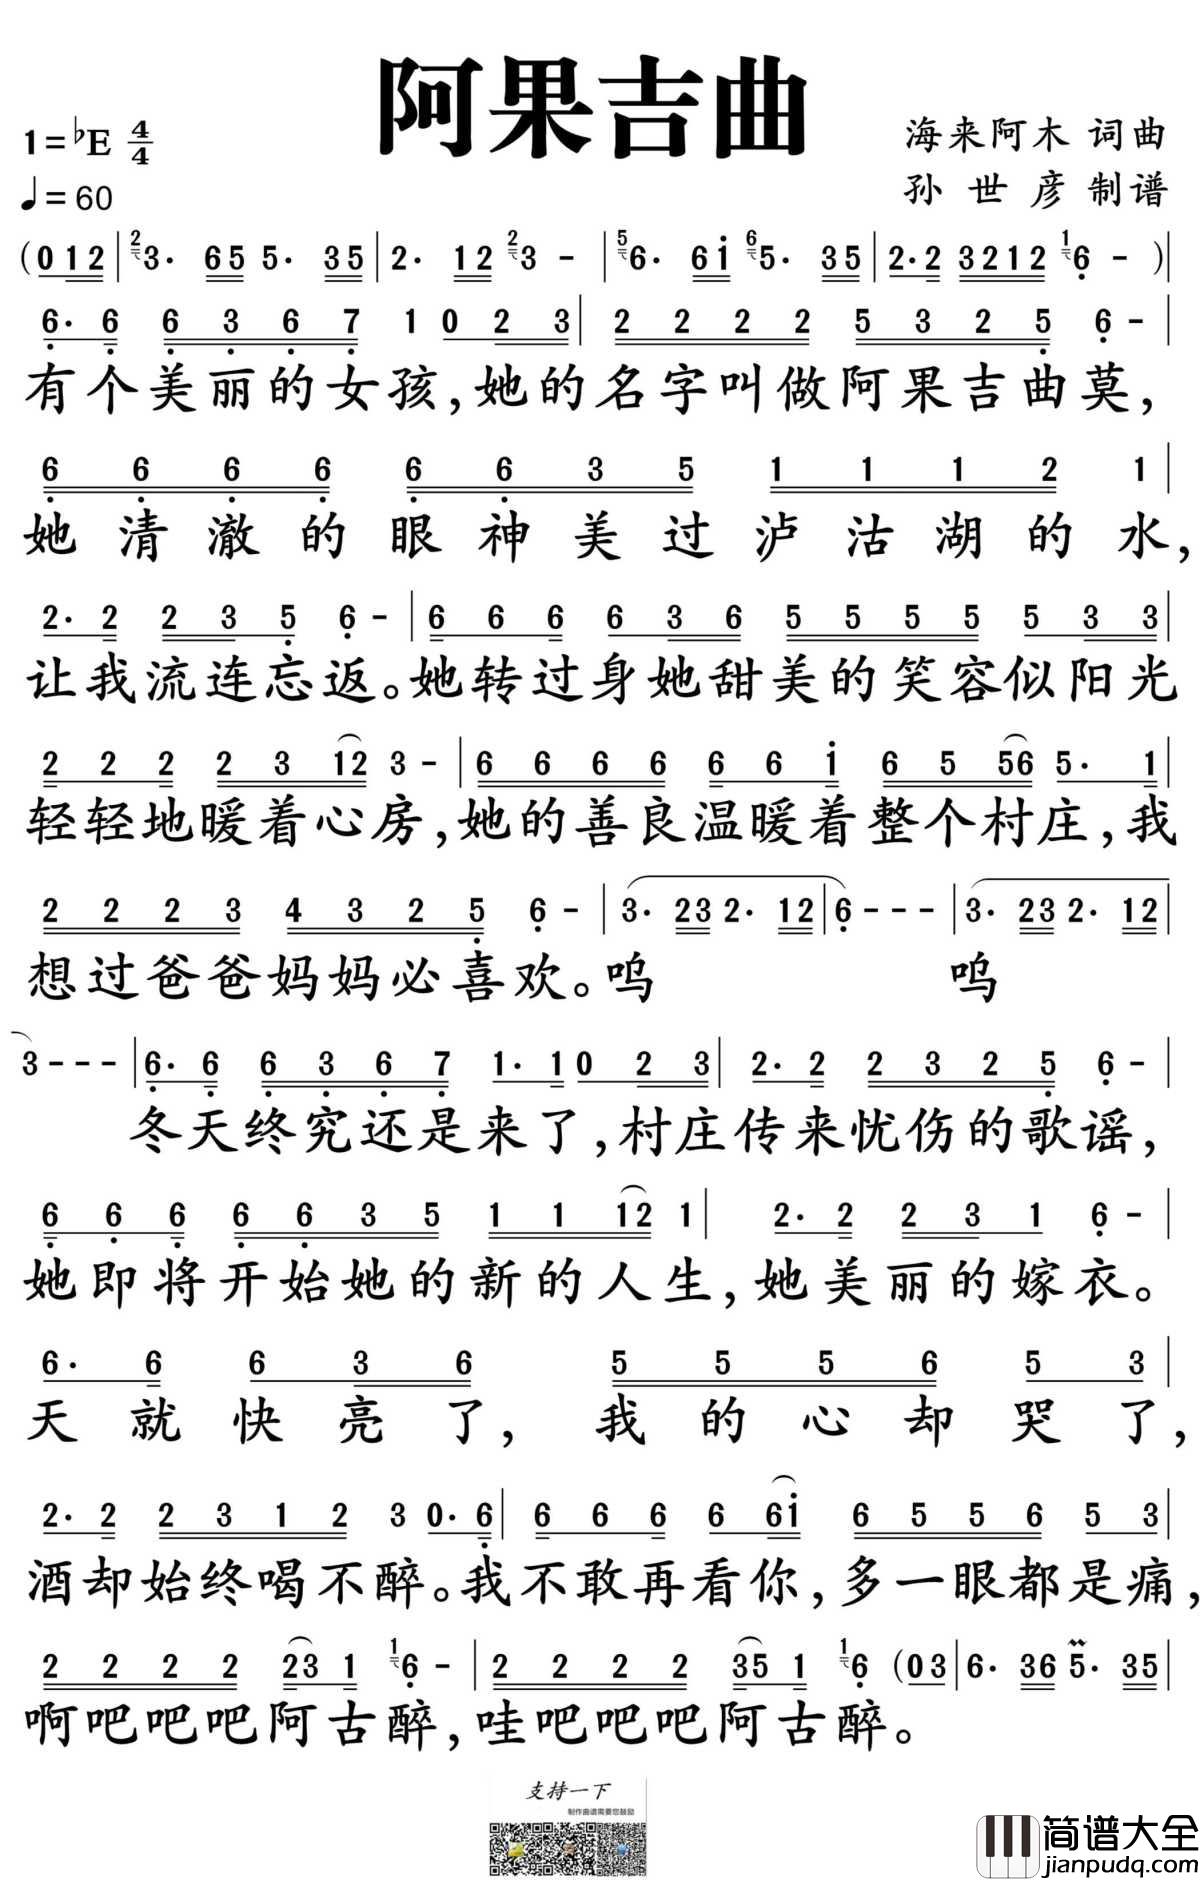 阿果吉曲
1=♭E 4/4
海来阿木 词曲
♩=60
孙世彦 制谱
(0 1 2 | 2 3· 6 5 5· 3 5 | 2· 1 2 2 3 - | 5 6· 6 i 6 5· 3 5 | 2· 2 3 2 1 2 1 6 - ) |
6· 6 6 3 6 7 1 0 2 3 | 2 2 2 2 5 3 2 5 6 - |
有个美丽的女孩,她的名字叫做阿果吉曲莫,
6 6 6 6 6 6 3 5 1 1 1 2 1 |
她清澈的眼神美过泸沽湖的水,
2· 2 2 3 5 6 - | 6 6 6 6 3 6 5 5 5 5 5 3 3 |
让我流连忘返。她转过身她甜美的笑容似阳光
2 2 2 2 3 1 2 3 - | 6 6 6 6 6 6 i 6 5 5 6 5· 1 |
轻轻地暖着心房,她的善良温暖着整个村庄,我
2 2 2 3 4 3 2 5 6 - | 3· 2 3 2· 1 2 | 6 - - - | 3· 2 3 2· 1 2 |
想过爸爸妈妈必喜欢。呜 呜
3 - - - | 6· 6 6 3 6 7 1· 1 0 2 3 | 2· 2 2 3 2 5 6 - |
冬天终究还是来了,村庄传来忧伤的歌谣,
6 6 6 6 6 3 5 1 1 1 2 1 | 2· 2 2 3 1 6 - |
她即将开始她的新的人生,她美丽的嫁衣。
6· 6 6 3 6 5 5 5 6 5 3 |
天就快亮了,我的心却哭了,
2· 2 2 3 1 2 3 0· 6 | 6 6 6 6 6 i 6 5 5 6 5 3 |
酒却始终喝不醉。我不敢再看你,多一眼都是痛,
2 2 2 2 2 3 1 1 6 - | 2 2 2 2 3 5 1 1 6 (0 3 | 6· 3 6 5· 3 5 |
啊吧吧吧阿古醉,哇吧吧吧阿古醉。
支持一下
制作曲谱需要您鼓励
简谱大全
jianpudq.com